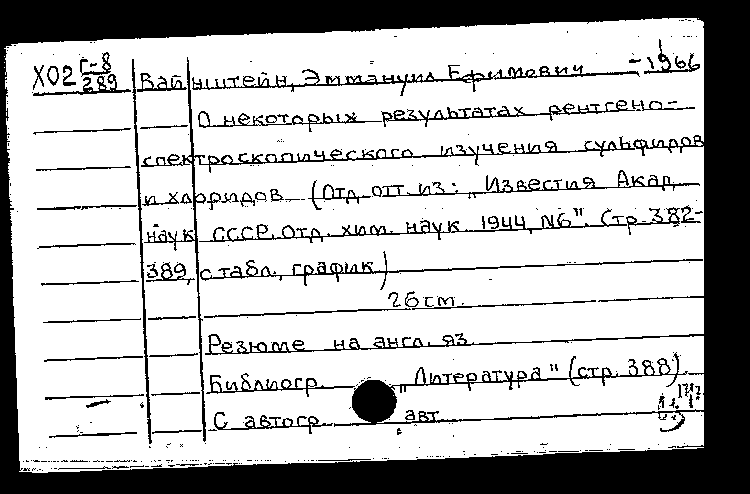 Х02 Г-8
289
Вайнштейн, Эммануил Ефимович -1966
О некоторых результатах рентгено-
спектроскопического изучения сульфидов
и хлоридов (Отд. отт. из: „Известия Акад.
наук СССР. Отд. хим. наук. 1944, N6". Стр. 382-
389, с табл., график)
26 см.
Резюме на англ. яз.
Библиогр. „Литература" (стр. 388).
С автогр. авт.